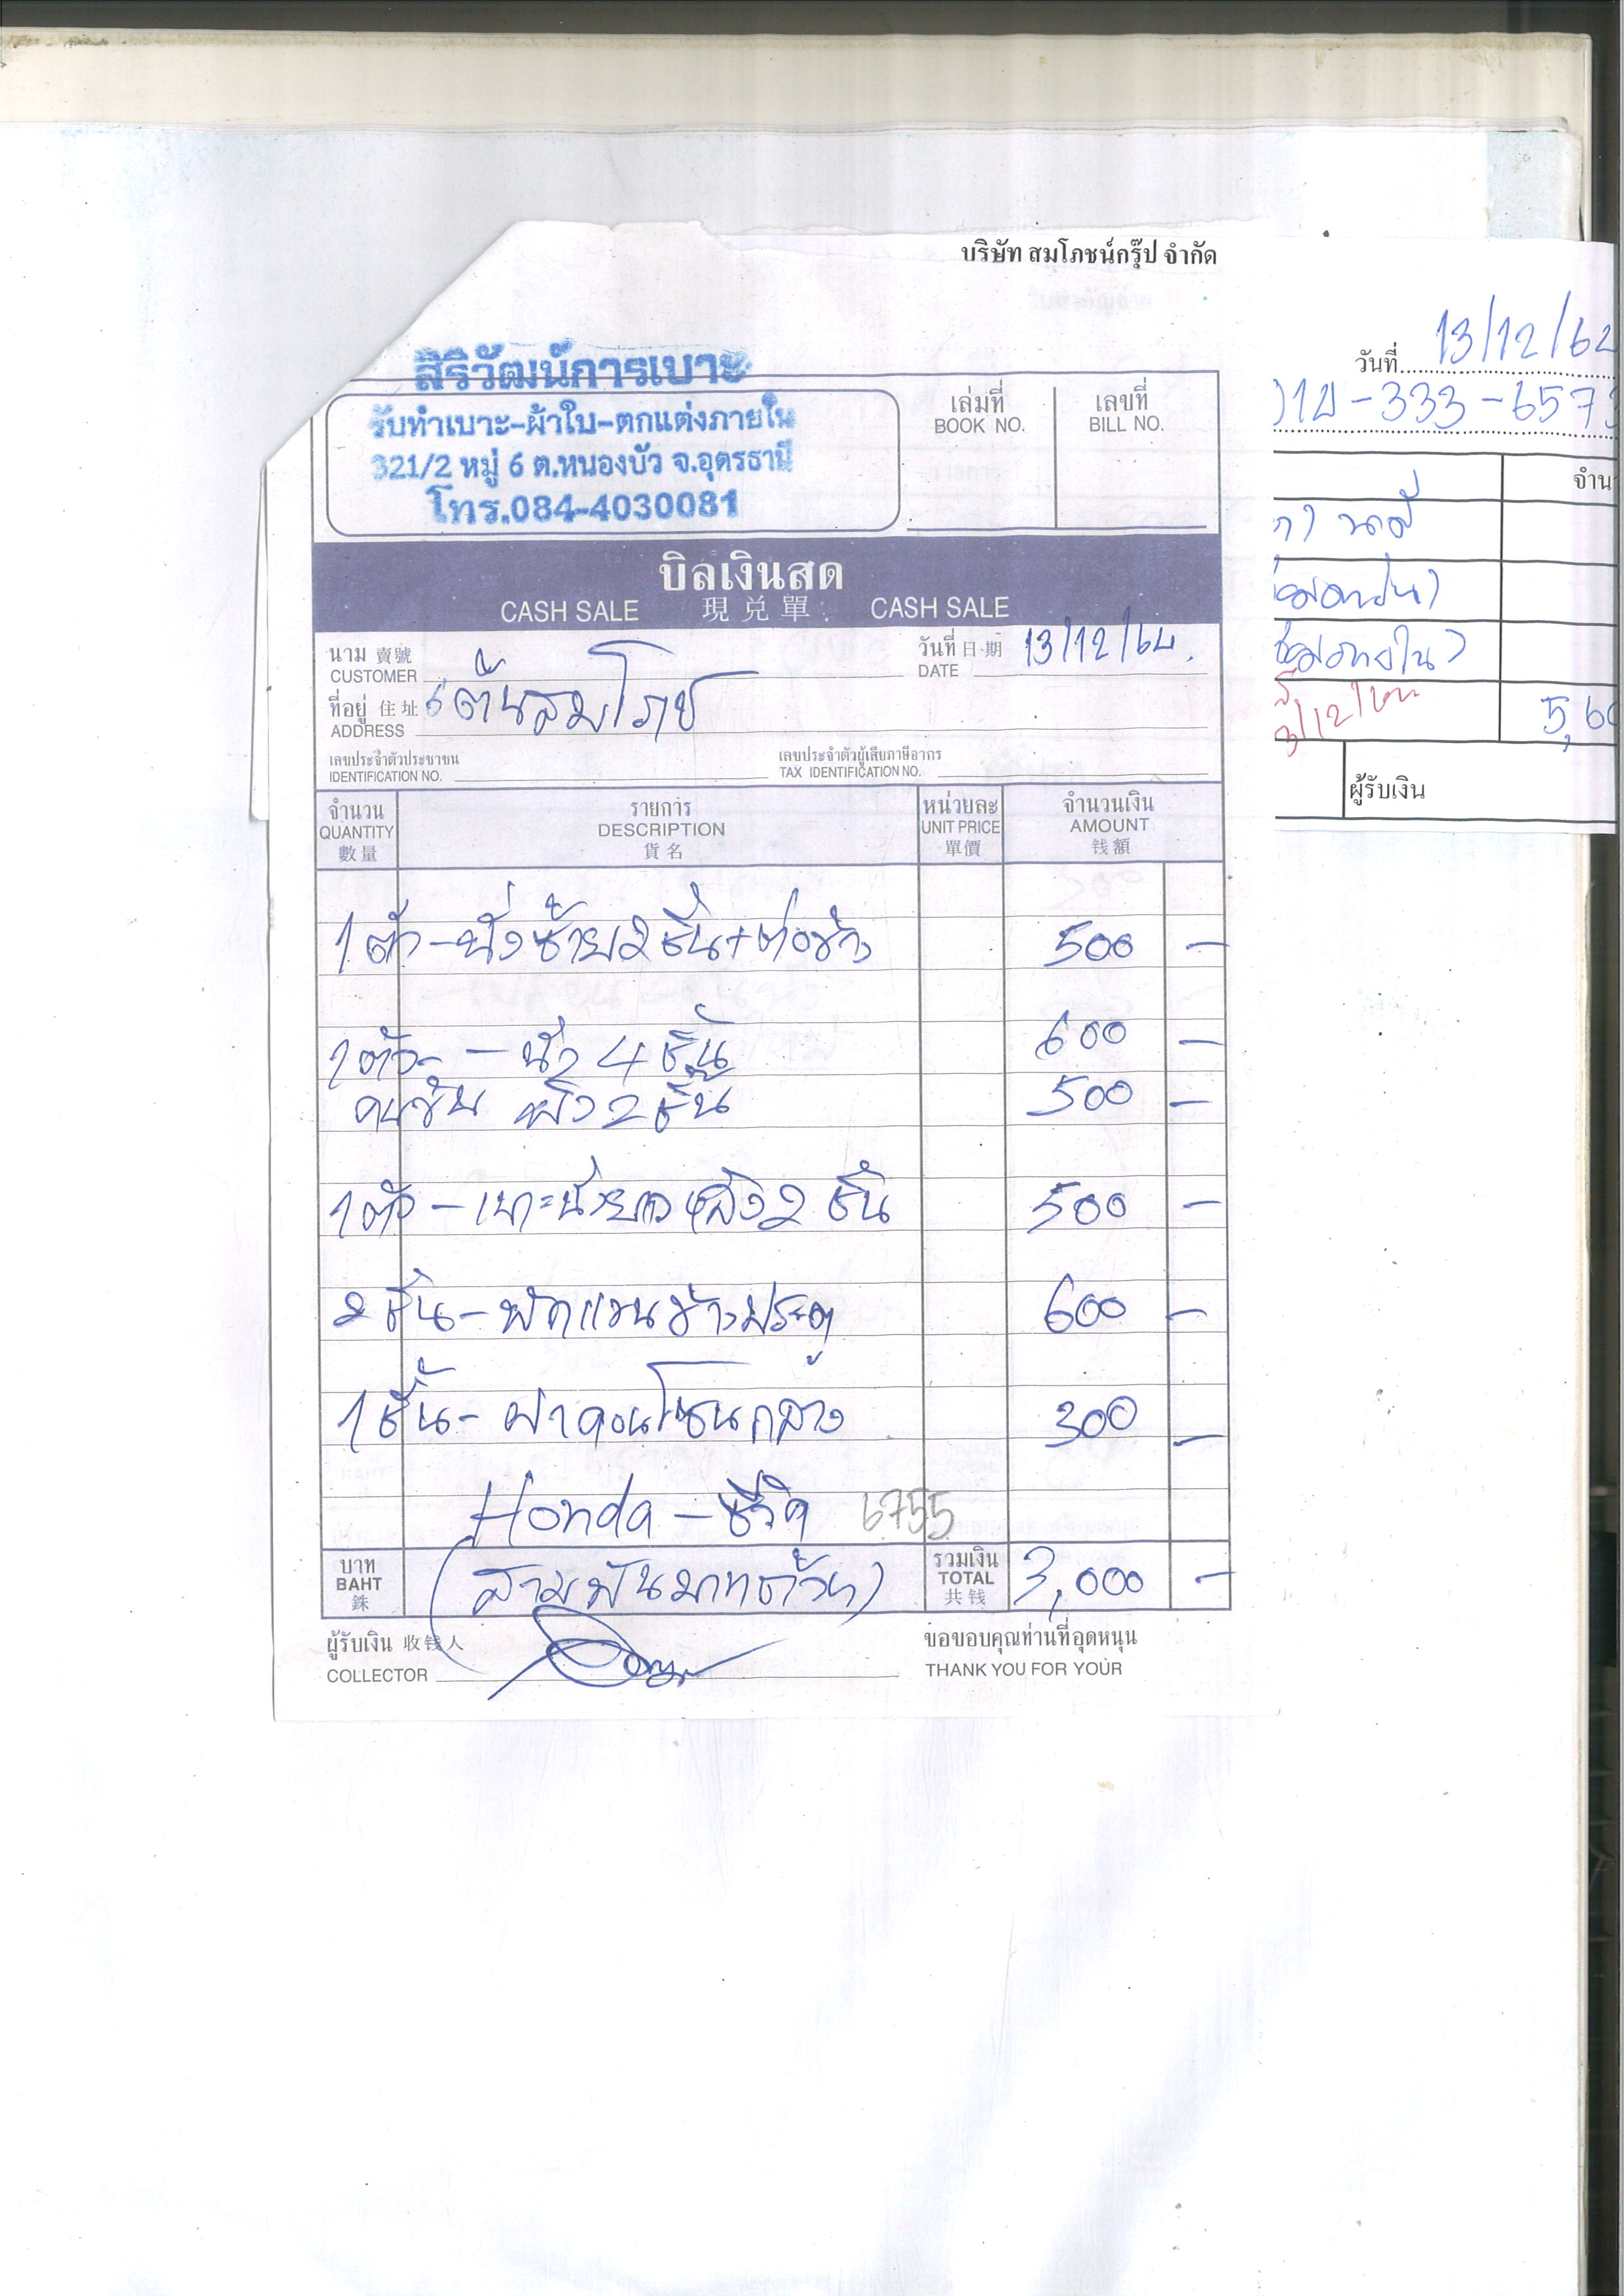 บริษัท สมโภชน์กรุ๊ป จำกัด
สิริวัฒน์การเบาะ
รับทำเบาะ-ผ้าใบ-ตกแต่งภายใน
321/2 หมู่ 6 ต.หนองบัว จ.อุดรธานี
โทร.084-4030081
เล่มที่ เลขที่
BOOK NO. BILL NO.
บิลเงินสด
CASH SALE 現兑單 CASH SALE
นาม 賣號 วันที่ 日期 13/12/64
CUSTOMER DATE
ที่อยู่ 住址 เต้นสมโภช
ADDRESS
เลขประจำตัวประชาชน เลขประจำตัวผู้เสียภาษีอากร
IDENTIFICATION NO. TAX IDENTIFICATION NO.
จำนวน รายการ หน่วยละ จำนวนเงิน
QUANTITY DESCRIPTION UNIT PRICE AMOUNT
數量 貨名 單價 钱額
1 ตัว - นั่งซ้าย 2 ชิ้น + 500 -
1 ตัว - นั่ง 4 ชิ้น 600 -
คนขับ พิง 2 ชิ้น 500 -
1 ตัว - เบาะนั่งยาวหลัง 2 ชิ้น 500 -
2 ชิ้น - พักแขนข้างประตู 600 -
1 ชิ้น - ฝาคอนโซนกลาง 300 -
Honda - ซีวิค 6755
บาท รวมเงิน
BAHT (สามพันบาทถ้วน) TOTAL 3,000 -
銖 共钱
ผู้รับเงิน 收钱人 ขอขอบคุณท่านที่อุดหนุน
COLLECTOR THANK YOU FOR YOUR
วันที่ 13/12/64
-333-657
จำน
5,60
ผู้รับเงิน